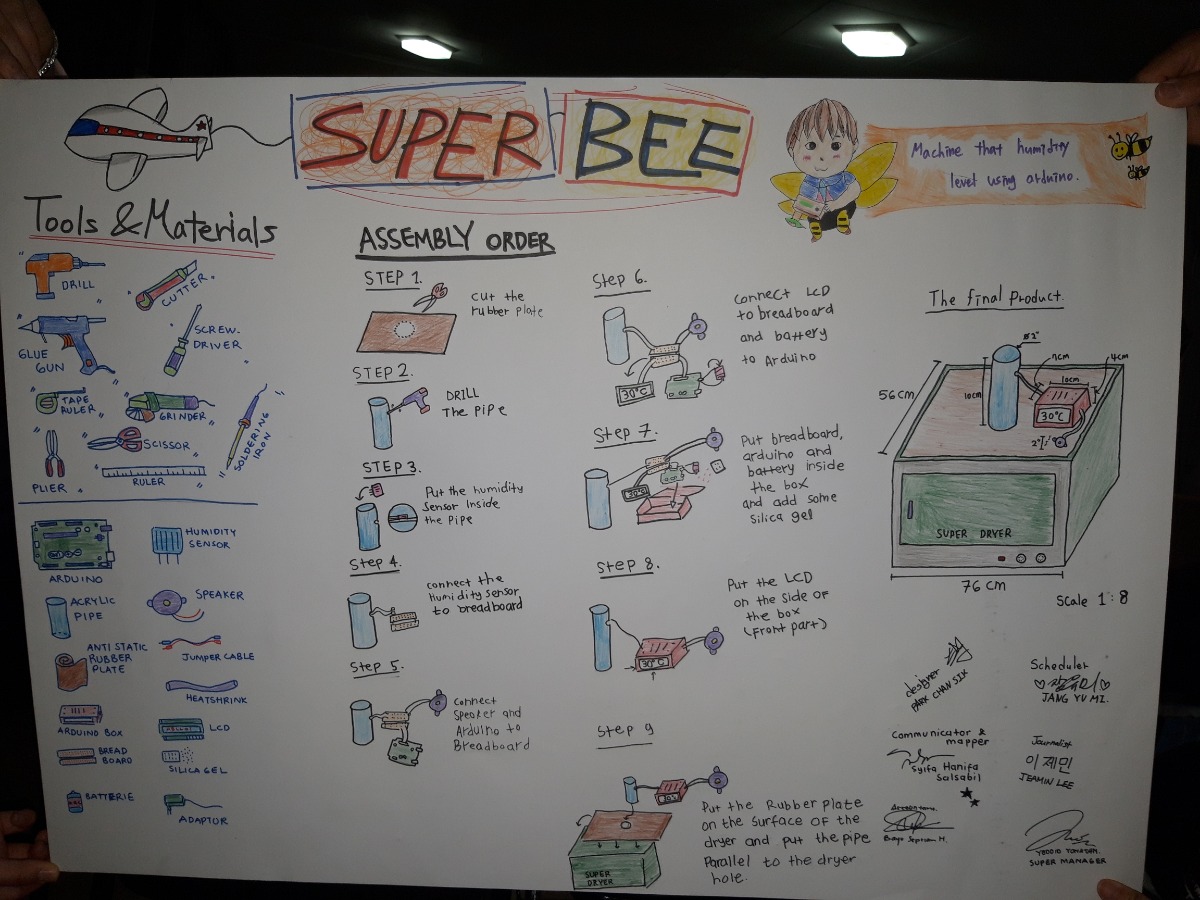 SUPER BEE
Machine that humidity
level using arduino.
Tools & Materials
DRILL
CUTTER
GLUE
GUN
SCREW-
DRIVER
TAPE
RULER
GRINDER
SOLDERING
IRON
PLIER
SCISSOR
RULER
ARDUINO
HUMIDITY
SENSOR
ACRYLIC
PIPE
SPEAKER
ANTI STATIC
RUBBER
PLATE
JUMPER CABLE
HEATSHRINK
ARDUINO BOX
LCD
BREAD
BOARD
SILICA GEL
BATTERIE
ADAPTOR
ASSEMBLY ORDER
STEP 1.
cut the
rubber plate
STEP 2.
DRILL
The pipe
STEP 3.
Put the humidity
sensor inside
the pipe
Step 4.
connect the
humidity sensor
to breadboard
Step 5.
Connect
Speaker and
Arduino to
Breadboard
Step 6.
Connect LCD
to breadboard
and battery
to Arduino
30°C
Step 7.
Put breadboard,
arduino and
battery inside
the box
and add some
silica gel
30°C
Step 8.
Put the LCD
on the side of
the box
(front part)
30°C
Step 9
Put the Rubber plate
on the surface of the
dryer and put the pipe
parallel to the dryer
hole.
SUPER
DRYER
The final product.
Ø2"
7cm
4cm
10cm
10cm
30°C
2"
56cm
SUPER DRYER
76 cm
Scale 1:8
designer
PARK CHAN SIX
Scheduler
JANG YU MI.
Communicator &
mapper
Syifa Hanifa
Salsabil
Journalist
이제민
JEAMIN LEE
SUPER MANAGER